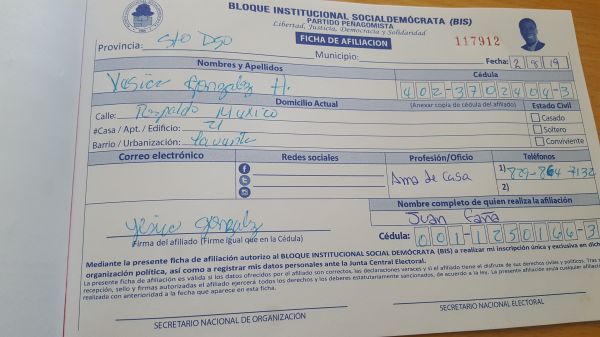 BLOQUE INSTITUCIONAL SOCIALDEMÓCRATA (BIS)
PARTIDO PEÑAGOMISTA
Libertad, Justicia, Democracia y Solidaridad
FICHA DE AFILIACIÓN
117912
Provincia: Sto Dgo Municipio: Fecha: 2 8 19
Nombres y Apellidos Cédula
Yesica Gonzalez H. 402-3702404-3
Domicilio Actual (Anexar copia de cédula del afiliado) Estado Civil
Calle: Respaldo Mexico Casado
#Casa / Apt. / Edificio: 21 Soltero
Barrio / Urbanización: Conviviente
Correo electrónico Redes sociales Profesión/Oficio Teléfonos
Ama de Casa 1) 829-864-7132
2)
Nombre completo de quien realiza la afiliación
Yesica Gonzalez Juan
Firma del afiliado (Firme igual que en la Cédula) Cédula: 001-1250166-3
Mediante la presente ficha de afiliación autorizo al BLOQUE INSTITUCIONAL SOCIAL DEMÓCRATA (BIS) a realizar mi inscripción única y exclusiva en dich
organización política, así como a registrar mis datos personales ante la Junta Central Electoral.
La presente ficha de afiliación es valida si los datos ofrecidos por el afiliado son correctos, las declaraciones veraces y si el afiliado tiene el disfrute de sus derechos civiles y políticos. Tras s
recepción, sello y firmas autorizadas el afiliado ejercerá todos los derechos y los deberes estatutariamente sancionados, de acuerdo a la ley. La presente afiliación anula cualquier afiliación
realizada con anterioridad a la fecha que aparece en esta ficha.
SECRETARIO NACIONAL DE ORGANIZACIÓN SECRETARIO NACIONAL ELECTORAL